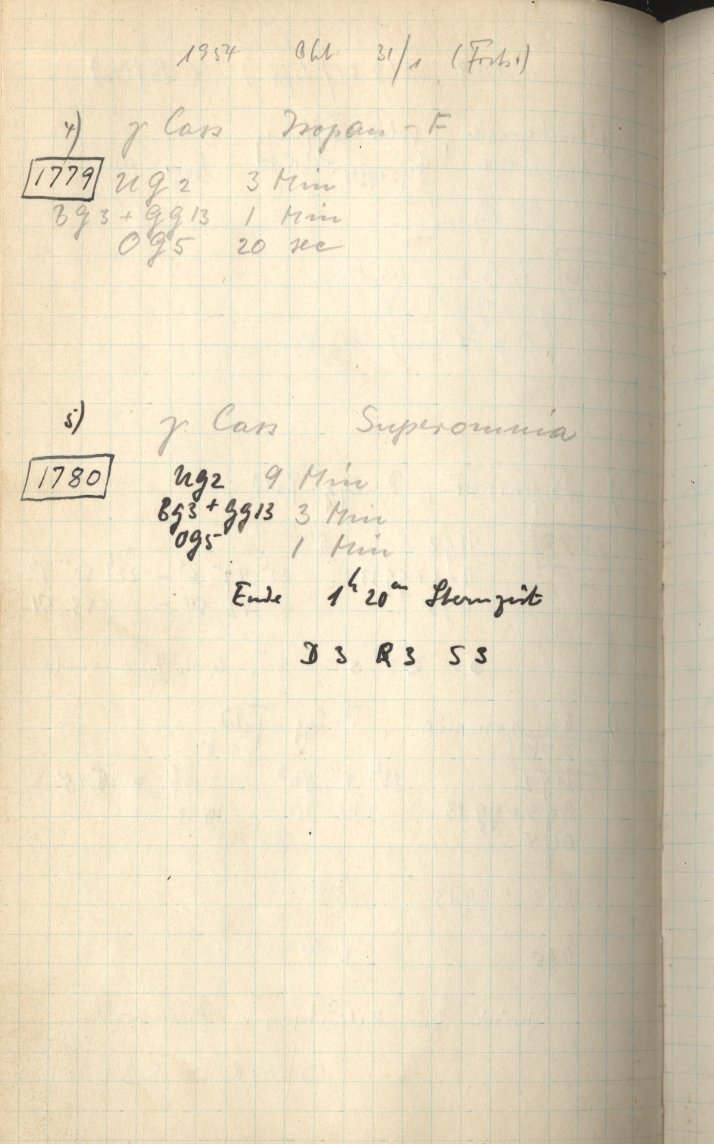 1954 Okt 31/1 (Forts.)
4) γ Cass Isopan - F
1779 Ug2 3 Min
Bg3 + Gg13 1 Min
Og5 20 sec
5) γ Cass Superomnia
1780 Ug2 9 Min
Bg3 + Gg13 3 Min
Og5 1 Min
Ende 1h 20m Sternzeit
D 3 R 3 S 3